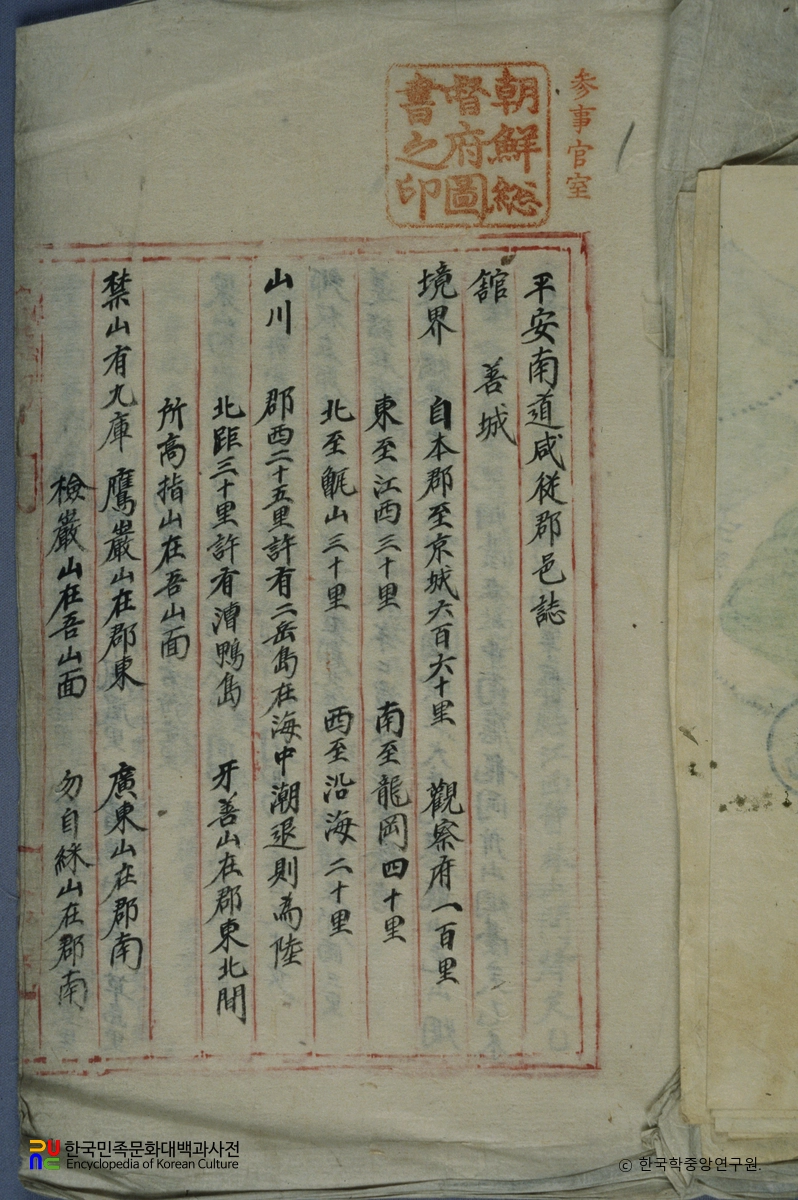 参事官室
朝鮮総
督府圖
書之印
平安南道咸從郡邑誌
舘 善城
境界 自本郡至京城六百六十里 觀察府一百里
東至江西三十里 南至龍岡四十里
北至甑山三十里 西至沿海二十里
山川 郡西二十五里許有二岳島在海中潮退則爲陸
北距三十里許有漕鴨島 牙善山在郡東北間
所高指山在吾山面
禁山有九庫 鷹巖山在郡東 廣東山在郡南
檢巖山在吾山面 勿自山在郡南
한국민족문화대백과사전
Encyclopedia of Korean Culture
© 한국학중앙연구원.